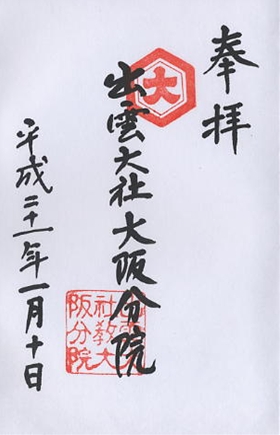 奉拝
大
出雲大社大阪分院
出雲大
社教大
阪分院
平成二十一年一月十日